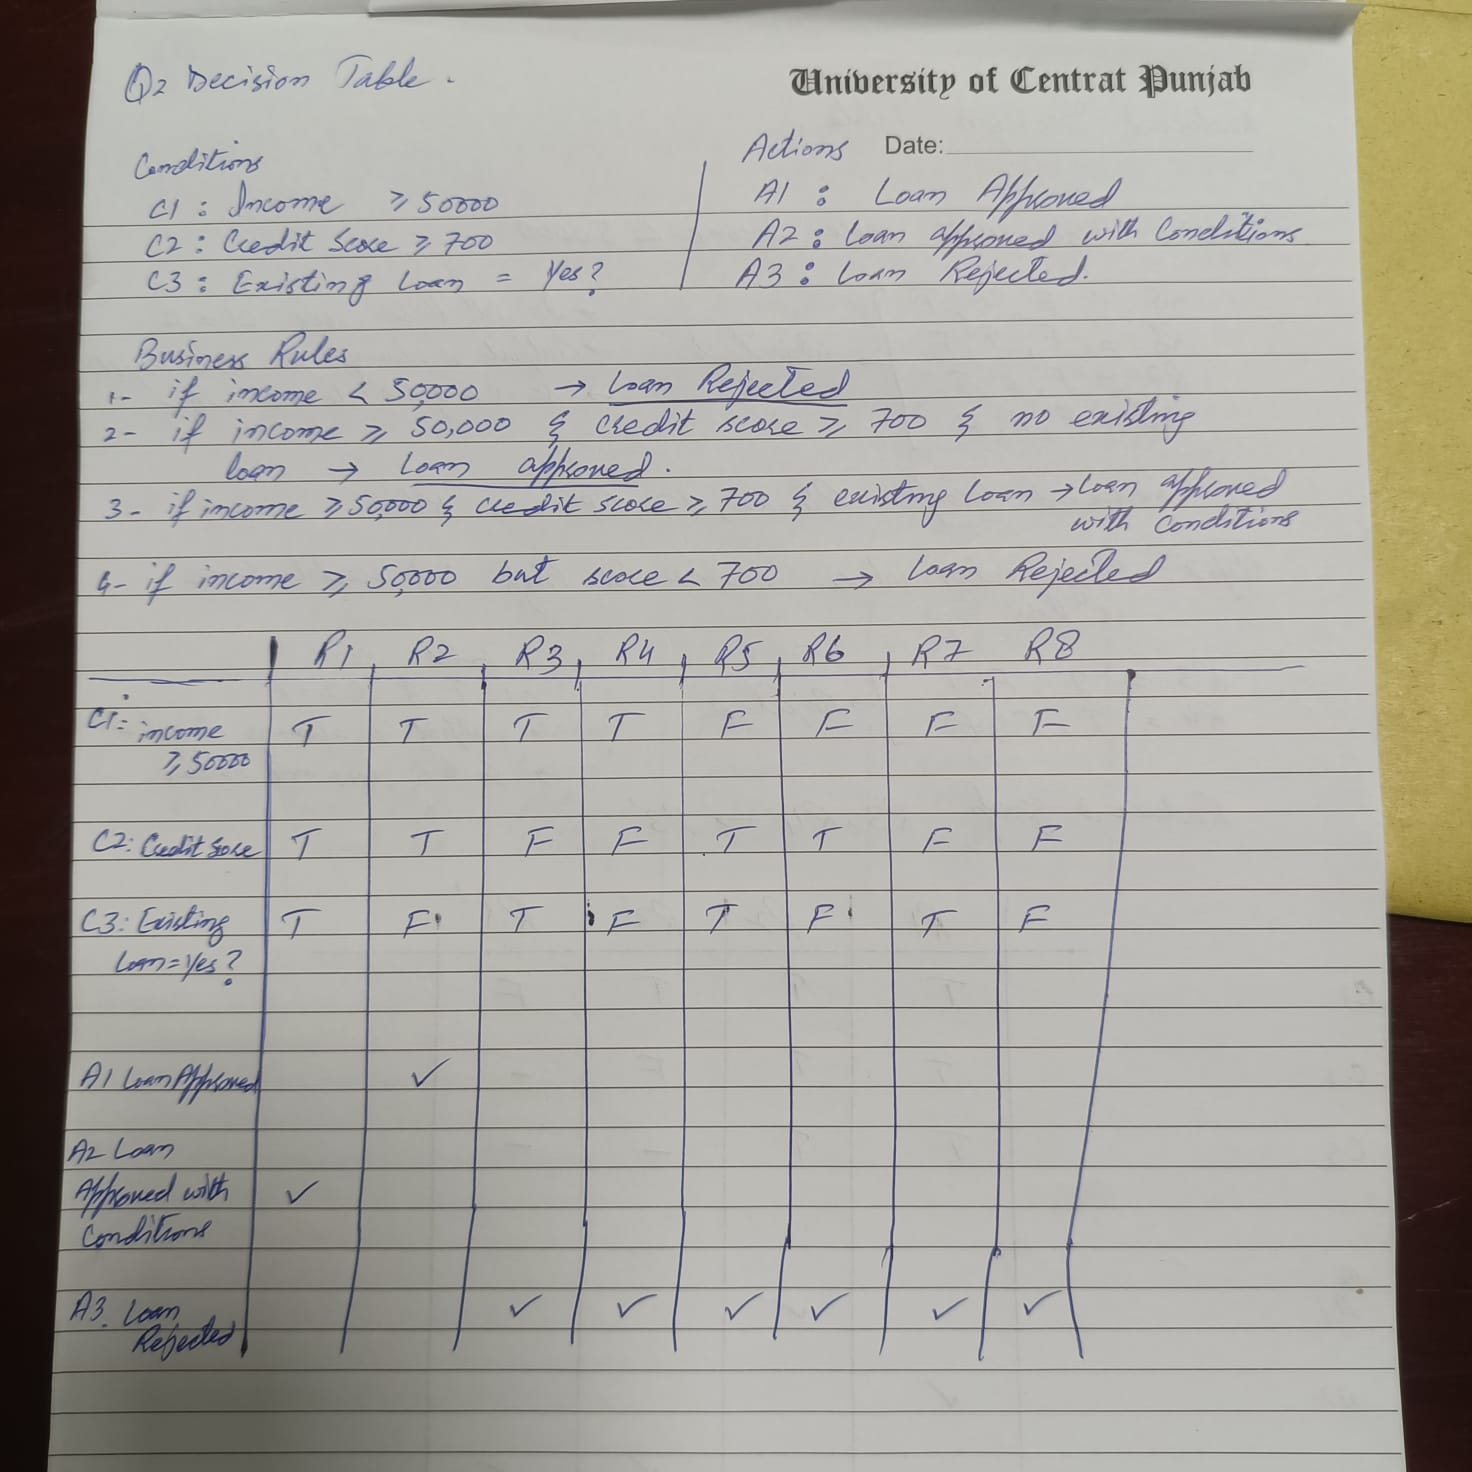 Q2 Decision Table.
University of Central Punjab
Date:
Conditions
C1 : Income ≥ 50000
C2 : Credit Score ≥ 700
C3 : Existing Loan = Yes?
Actions
A1 : Loan Approved
A2 : Loan approved with Conditions
A3 : Loan Rejected.
Business Rules
1- if income < 50,000 → Loan Rejected
2- if income ≥ 50,000 & credit score ≥ 700 & no existing
loan → Loan approved.
3- if income ≥ 50,000 & credit score ≥ 700 & existing Loan → Loan approved
with Conditions
4- if income ≥ 50,000 but score < 700 → Loan Rejected
R1 R2 R3 R4 R5 R6 R7 R8
C1: income T T T T F F F F
≥ 50000
C2: Credit Score T T F F T T F F
C3: Existing T F T F T F T F
Loan = Yes?
A1 Loan Approved ✓
A2 Loan
Approved with ✓
Conditions
A3. Loan ✓ ✓ ✓ ✓ ✓ ✓
Rejected